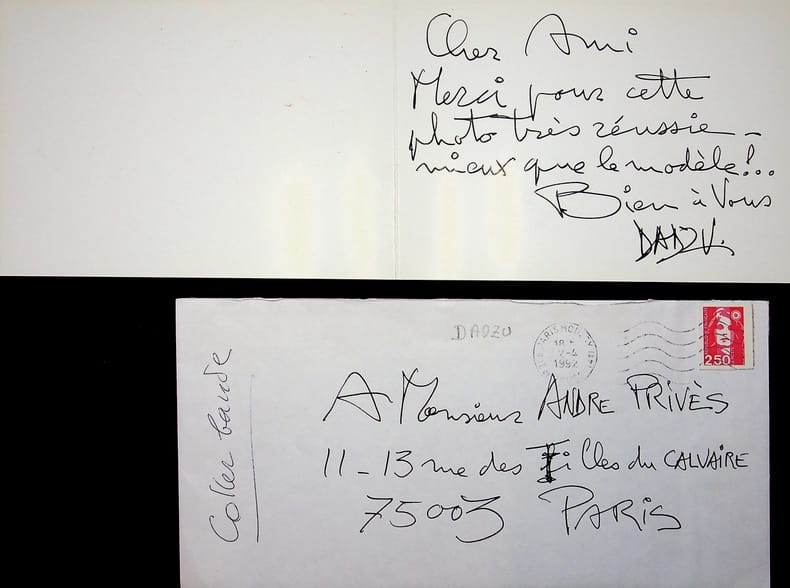 Cher Ami
Merci pour cette
photo très réussie –
mieux que le modèle!..
Bien à Vous
DADZU.
DADZU
PARIS
18
2-4
1992
2,50
A Monsieur ANDRE PRIVÈS
11-13 rue des Filles du CALVAIRE
75003 PARIS
Coller bande